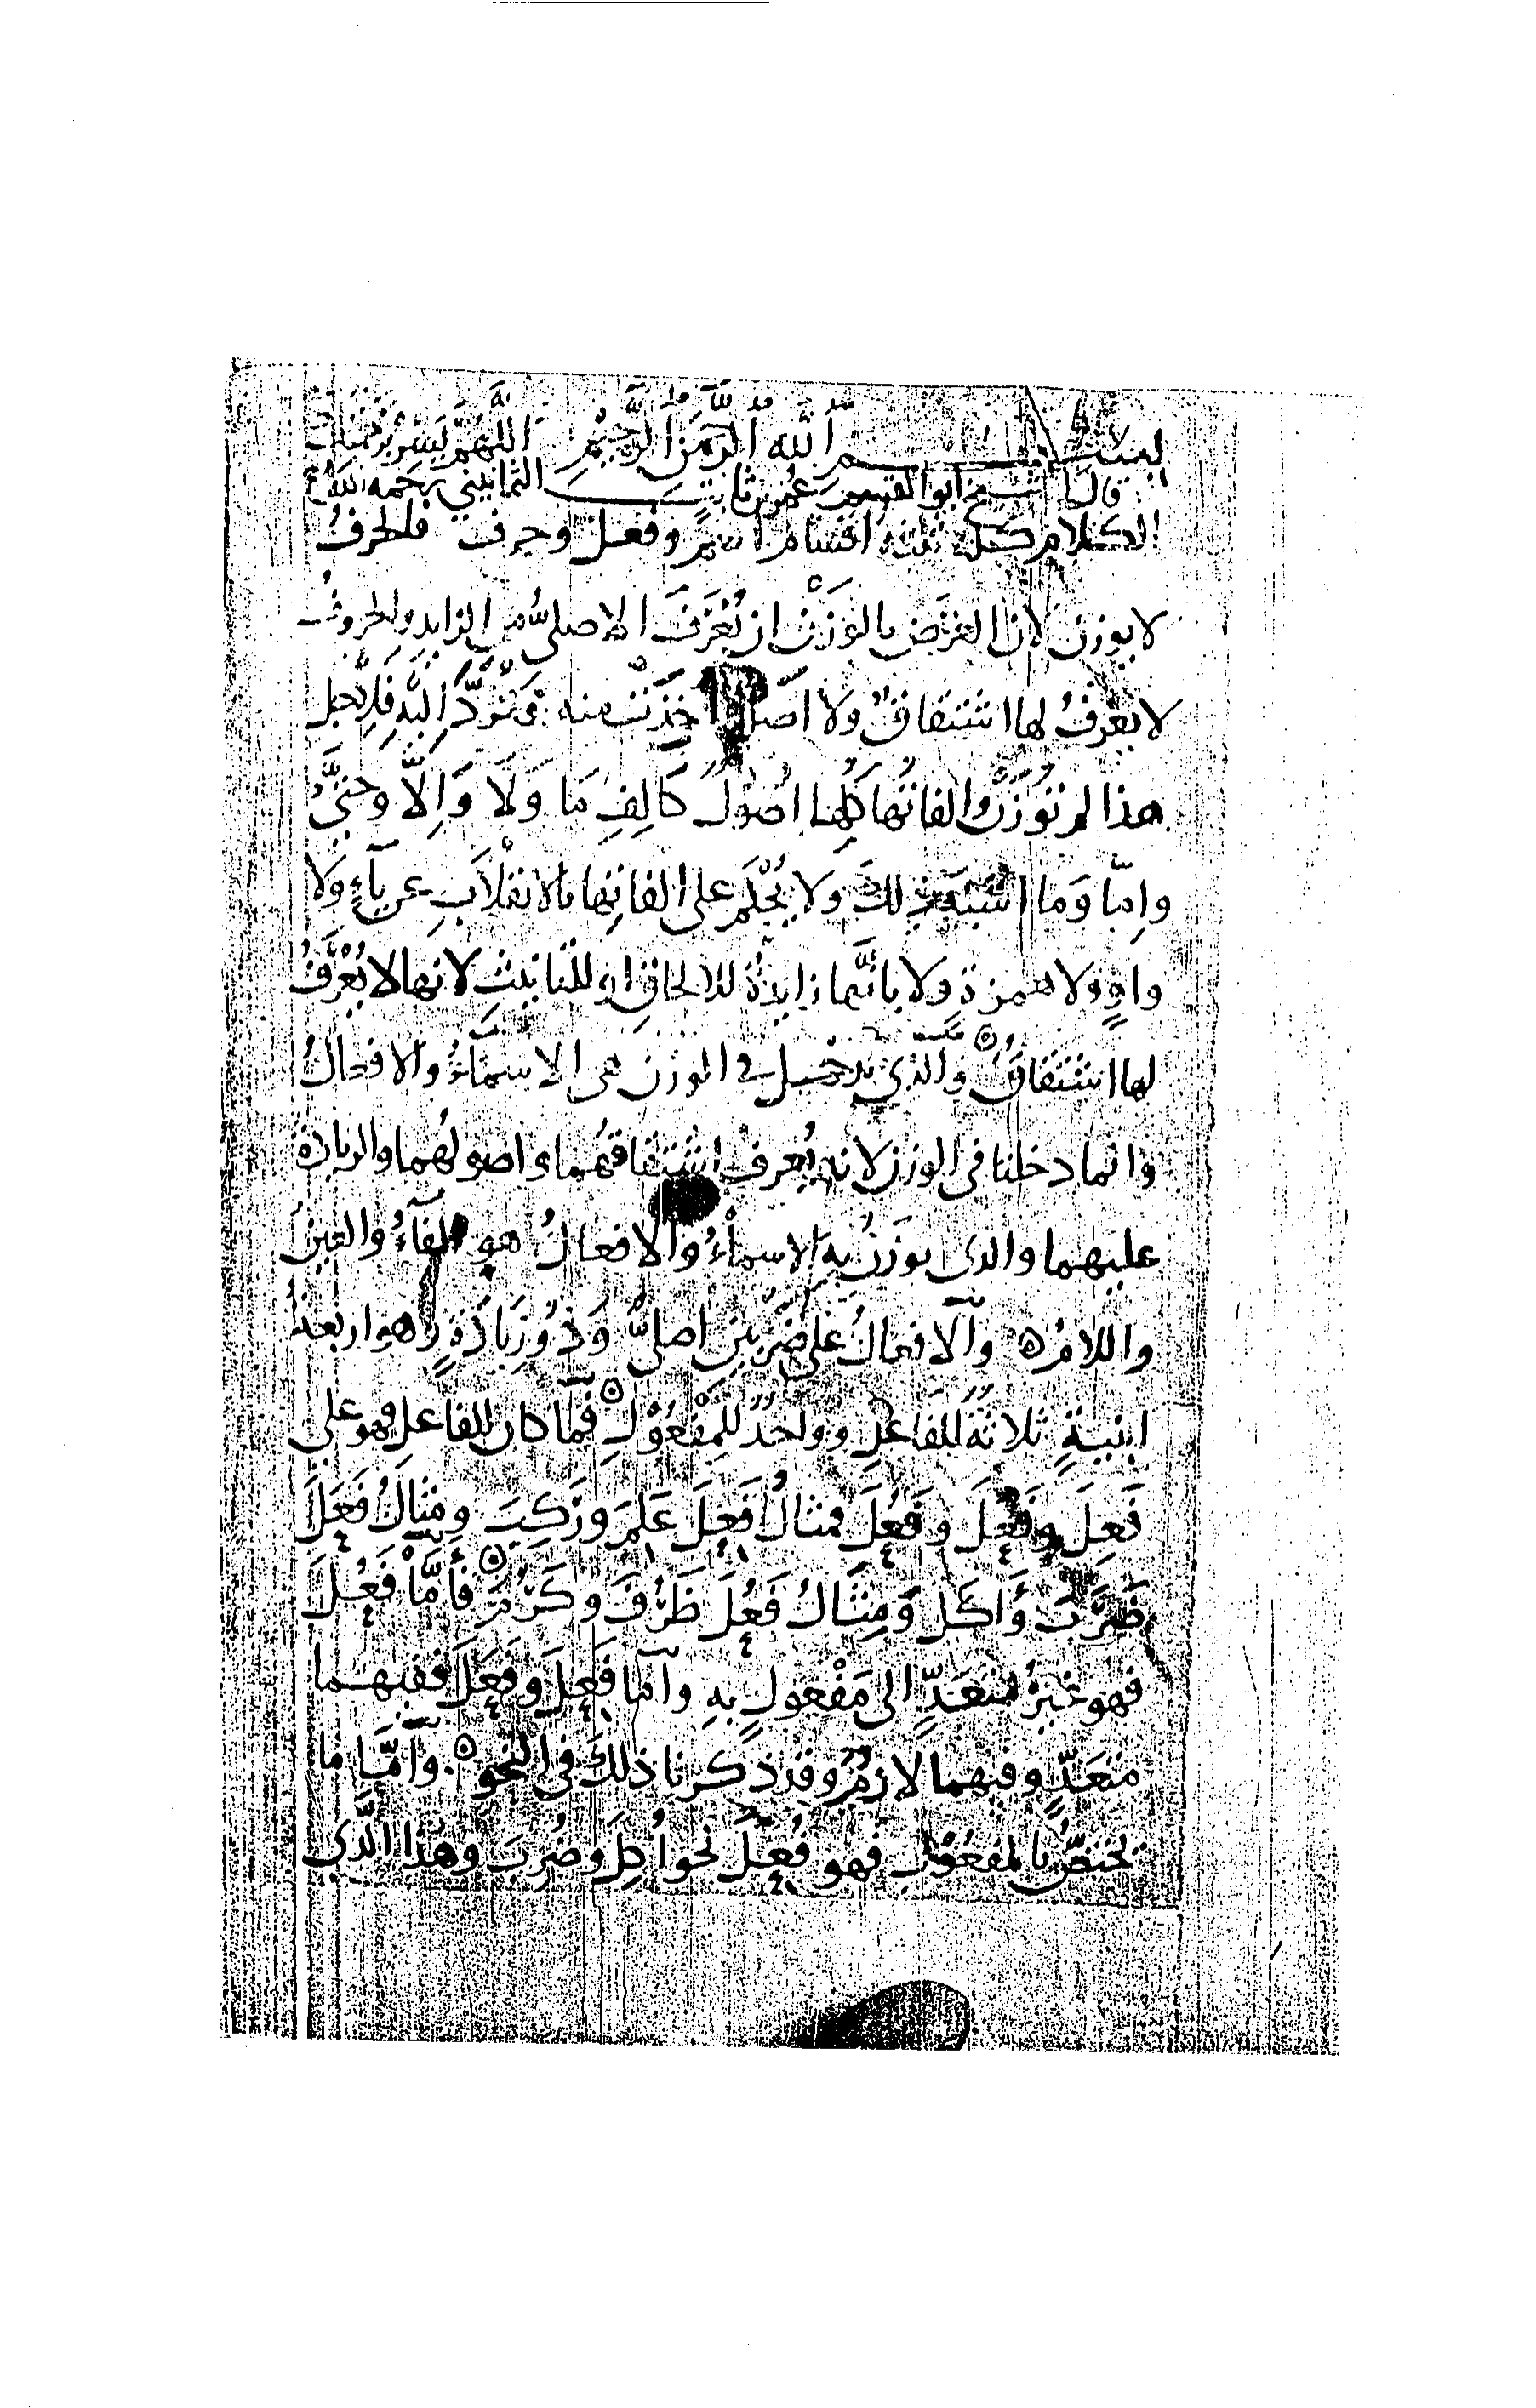 بسم الله الرحمن الرحيم اللهم يسر برحمتك
قال الشيخ ابو القسم عمر بن ثابت الثمانيني رحمه الله
الكلام كله ثلثة اقسام اسم وفعل وحرف فالحرفُ
لا يوزن لان الغرض بالوَزْن ان يُعْرَفَ الاصليُّ من الزايد والحروف
لا يعرفُ لها اشتقاقٌ ولا اصل اخذَتْ منه وتُرَدُّ اليه فلاجل
هذا لم تُوزَن والفاتُها كلها اُصُولٌ كَالِفِ مَا وَلَا وَاِلَّا وحتَّى
واِمّا وَما اشبه ذلك ولا يُحْكَم على الفاتِها بالانقلابِ عن ياءٍ ولا
واوٍ ولا همزة ولا بانَّها زايدةٌ للالحاق او للتانيث لانها لا يُعْرَفُ
لها اشتقاقٌ والذي يدخل في الوزن هي الاسمَاءُ والافعالُ
وانما دخلتا في الوزن لانه يُعرف اشتقاقهُما واصولهُما والزيادة
عليهما والذي يوزَنُ بِهِ الاسماءُ والافعالُ هو الفآءُ والعينُ
واللامُ ه والافعالُ على ضَرْبَيْنِ اصليٌّ وَذُو زِيَادَةٍ وهو اربعة
ابنيةٍ ثلاثةٌ للفاعلِ وواحدٌ للمَفْعُوْلِ ه فما كان للفاعل فهو على
فَعِلَ وفَعَلَ وفَعُلَ فمثالُ فَعِلَ عَلِمَ ورَكِبَ ومِثالُ فَعَلَ
ضَرَبَ وَاَكَلَ وَمِثَالُ فَعُلَ ظَرُفَ وكَرُمَ ه فأمَّا فَعُلَ
فهو غيرُ مُتَعَدٍّ الى مَفْعولٍ بِهِ وامّا فَعِلَ وفَعَلَ ففيهما
متعَدٍّ وفيهما لازمٌ وقد ذكرنا ذلك في النحو ه وامَّا ما
يختصُّ بالمفعُوْلِ فهو فُعِلَ نحو اُكِلَ وضُرِبَ وهذا الَّذي